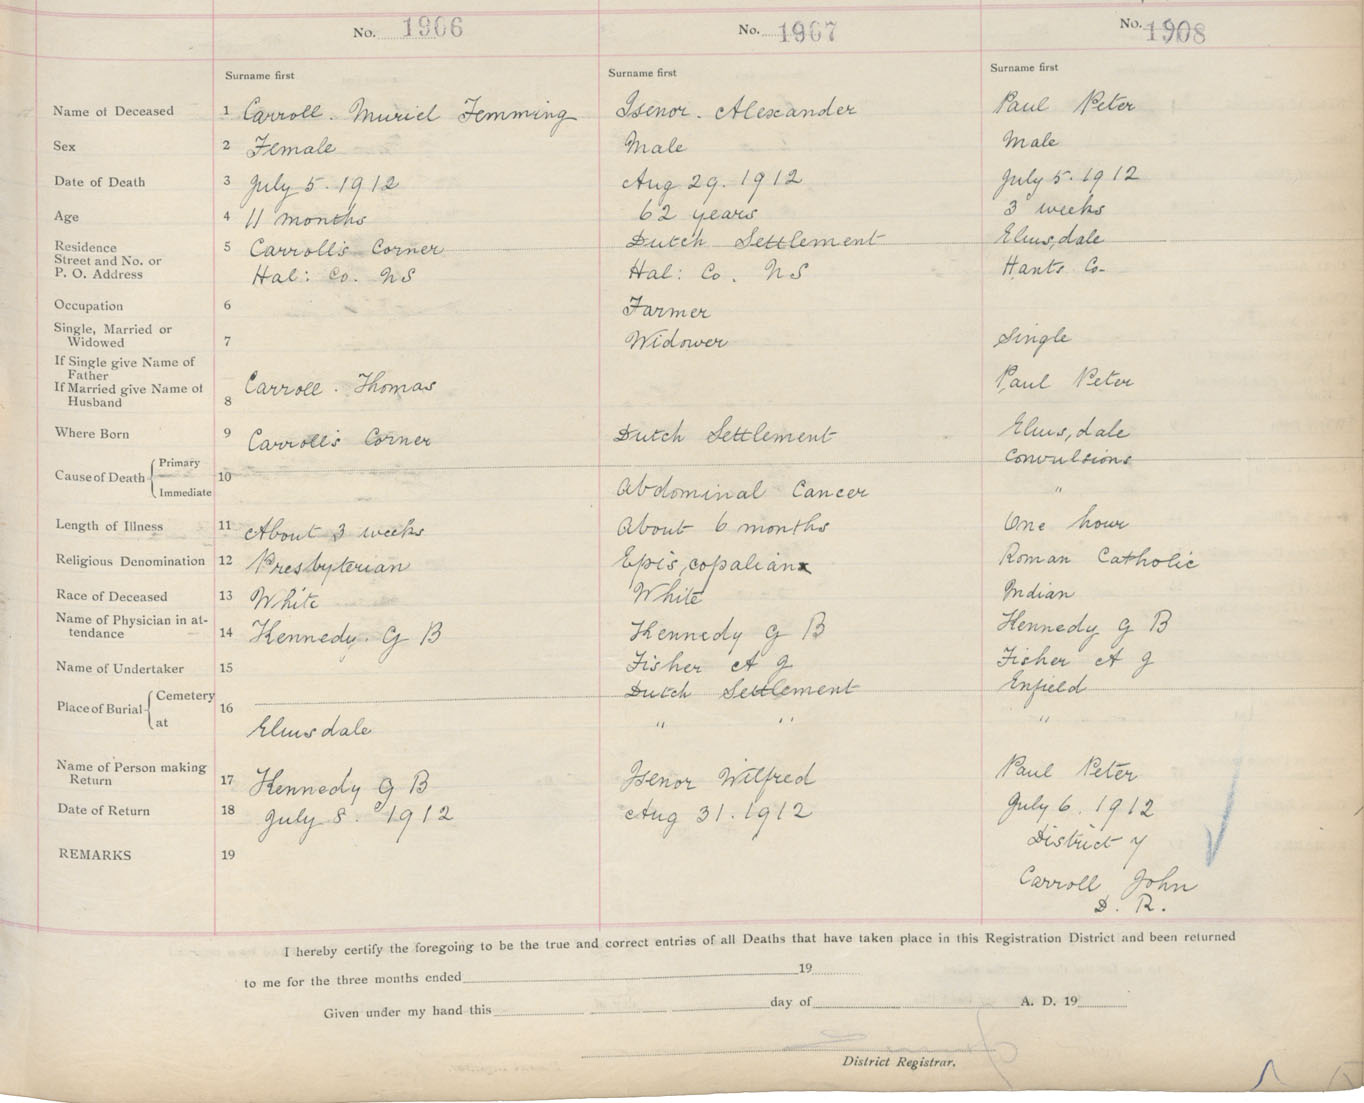 No. 1906 No. 1907 No. 1908
Surname first Surname first Surname first
Name of Deceased 1 Carroll. Muriel Femming Isenor. Alexander Paul Peter
Sex 2 Female Male Male
Date of Death 3 July 5. 1912 Aug 29. 1912 July 5. 1912
Age 4 11 months 62 years 3 weeks
Residence 5 Carroll's Corner Dutch Settlement Elmsdale
Street and No. or
P. O. Address Hal: Co. NS Hal: Co. NS Hants Co-
Occupation 6 Farmer
Single, Married or
Widowed 7 Widower Single
If Single give Name of
Father
If Married give Name of Carroll. Thomas Paul Peter
Husband 8
Where Born 9 Carroll's Corner Dutch Settlement Elmsdale
Cause of Death Primary 10 Convulsions
Immediate Abdominal Cancer "
Length of Illness 11 About 3 weeks About 6 months One hour
Religious Denomination 12 Presbyterian Episcopalian Roman Catholic
Race of Deceased 13 White White Indian
Name of Physician in at-
tendance 14 Kennedy. G B Kennedy G B Kennedy G B
Name of Undertaker 15 Fisher A J Fisher A J
Place of Burial Cemetery 16 Dutch Settlement Enfield
at Elmsdale " " "
Name of Person making
Return 17 Kennedy G B Isenor Wilfred Paul Peter
Date of Return 18 July 8. 1912 Aug 31. 1912 July 6. 1912
REMARKS 19 District 7
Carroll John
D. R.
I hereby certify the foregoing to be the true and correct entries of all Deaths that have taken place in this Registration District and been returned
to me for the three months ended 19
Given under my hand this day of A. D. 19
District Registrar.